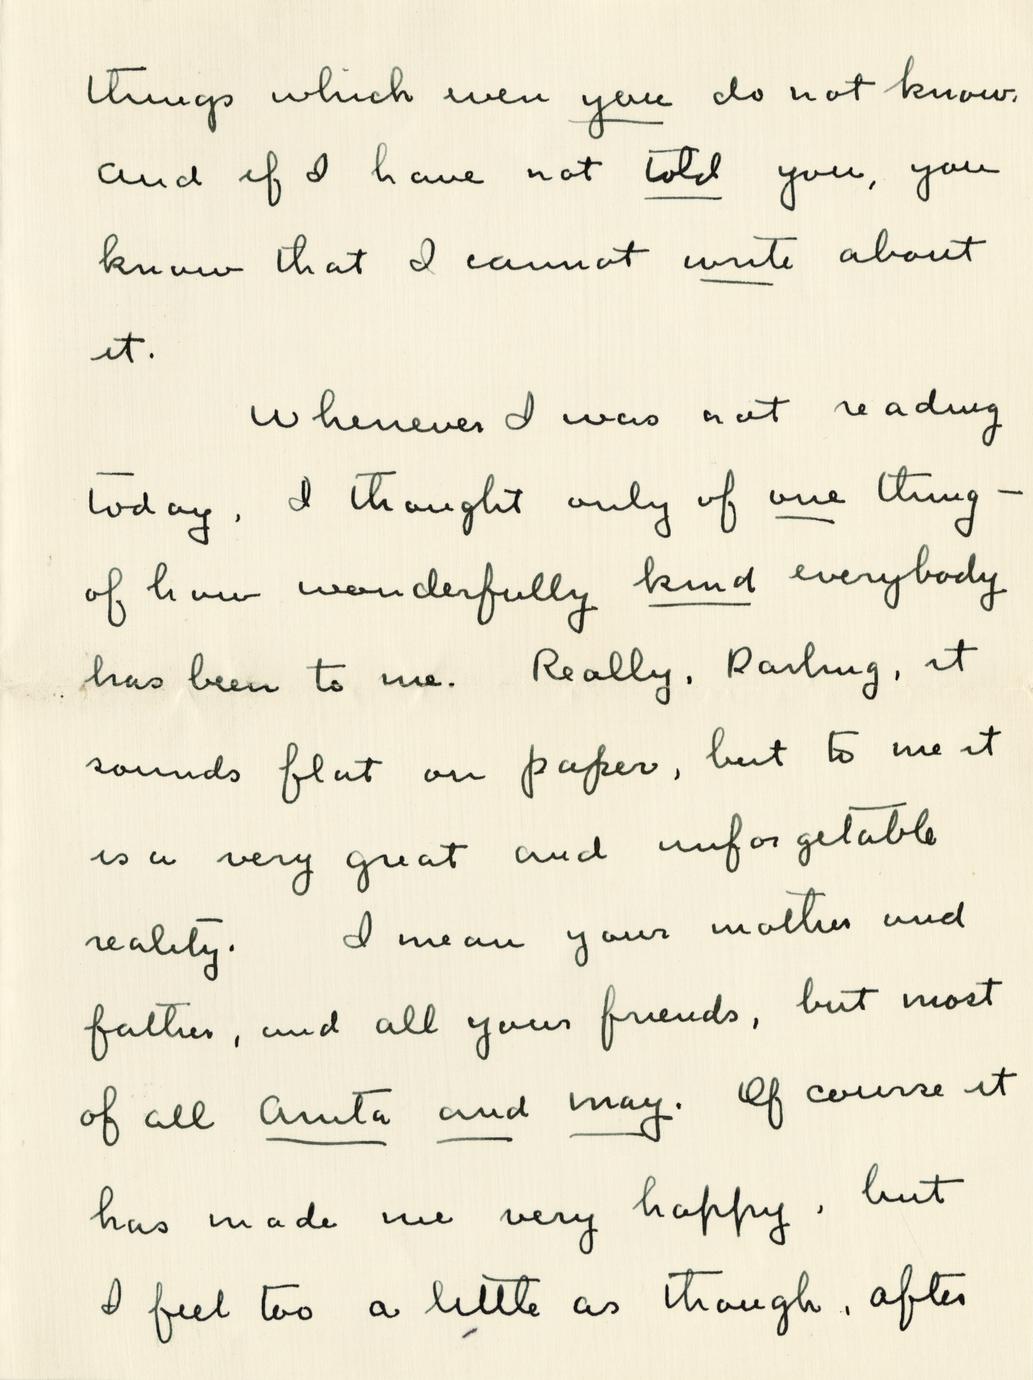 things which even you do not know.
and if I have not told you, you
know that I cannot write about
it.
Whenever I was not reading
today, I thought only of one thing —
of how wonderfully kind everybody
has been to me. Really, Darling, it
sounds flat on paper, but to me it
is a very great and unforgetable
reality. I mean your mother and
father, and all your friends, but most
of all Anita and May. Of course it
has made me very happy, but
I feel too a little as though, after